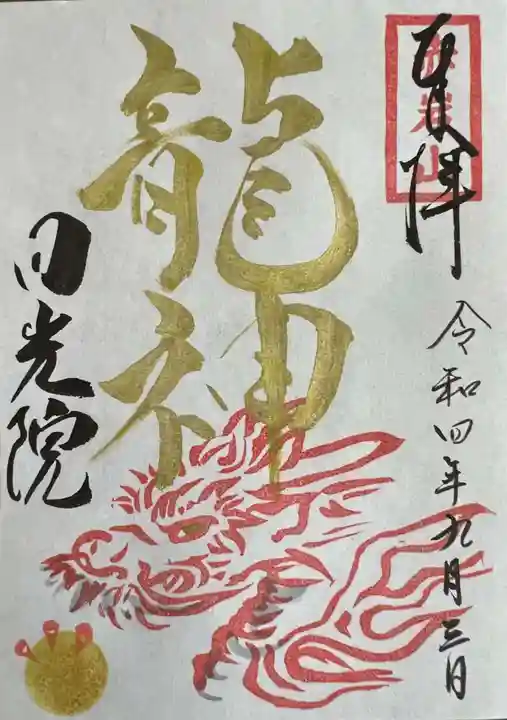 赤岩山
令和四年九月三日
龍神
日光院